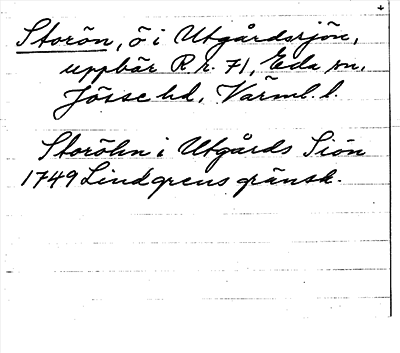 Storön, ö i Utgårdssjön,
uppbär R. r. 71, Eda sn.
Jösse hd, Värml. l.
Storöhn i Utgårds Siön
1749 Lindgrens gränsk.